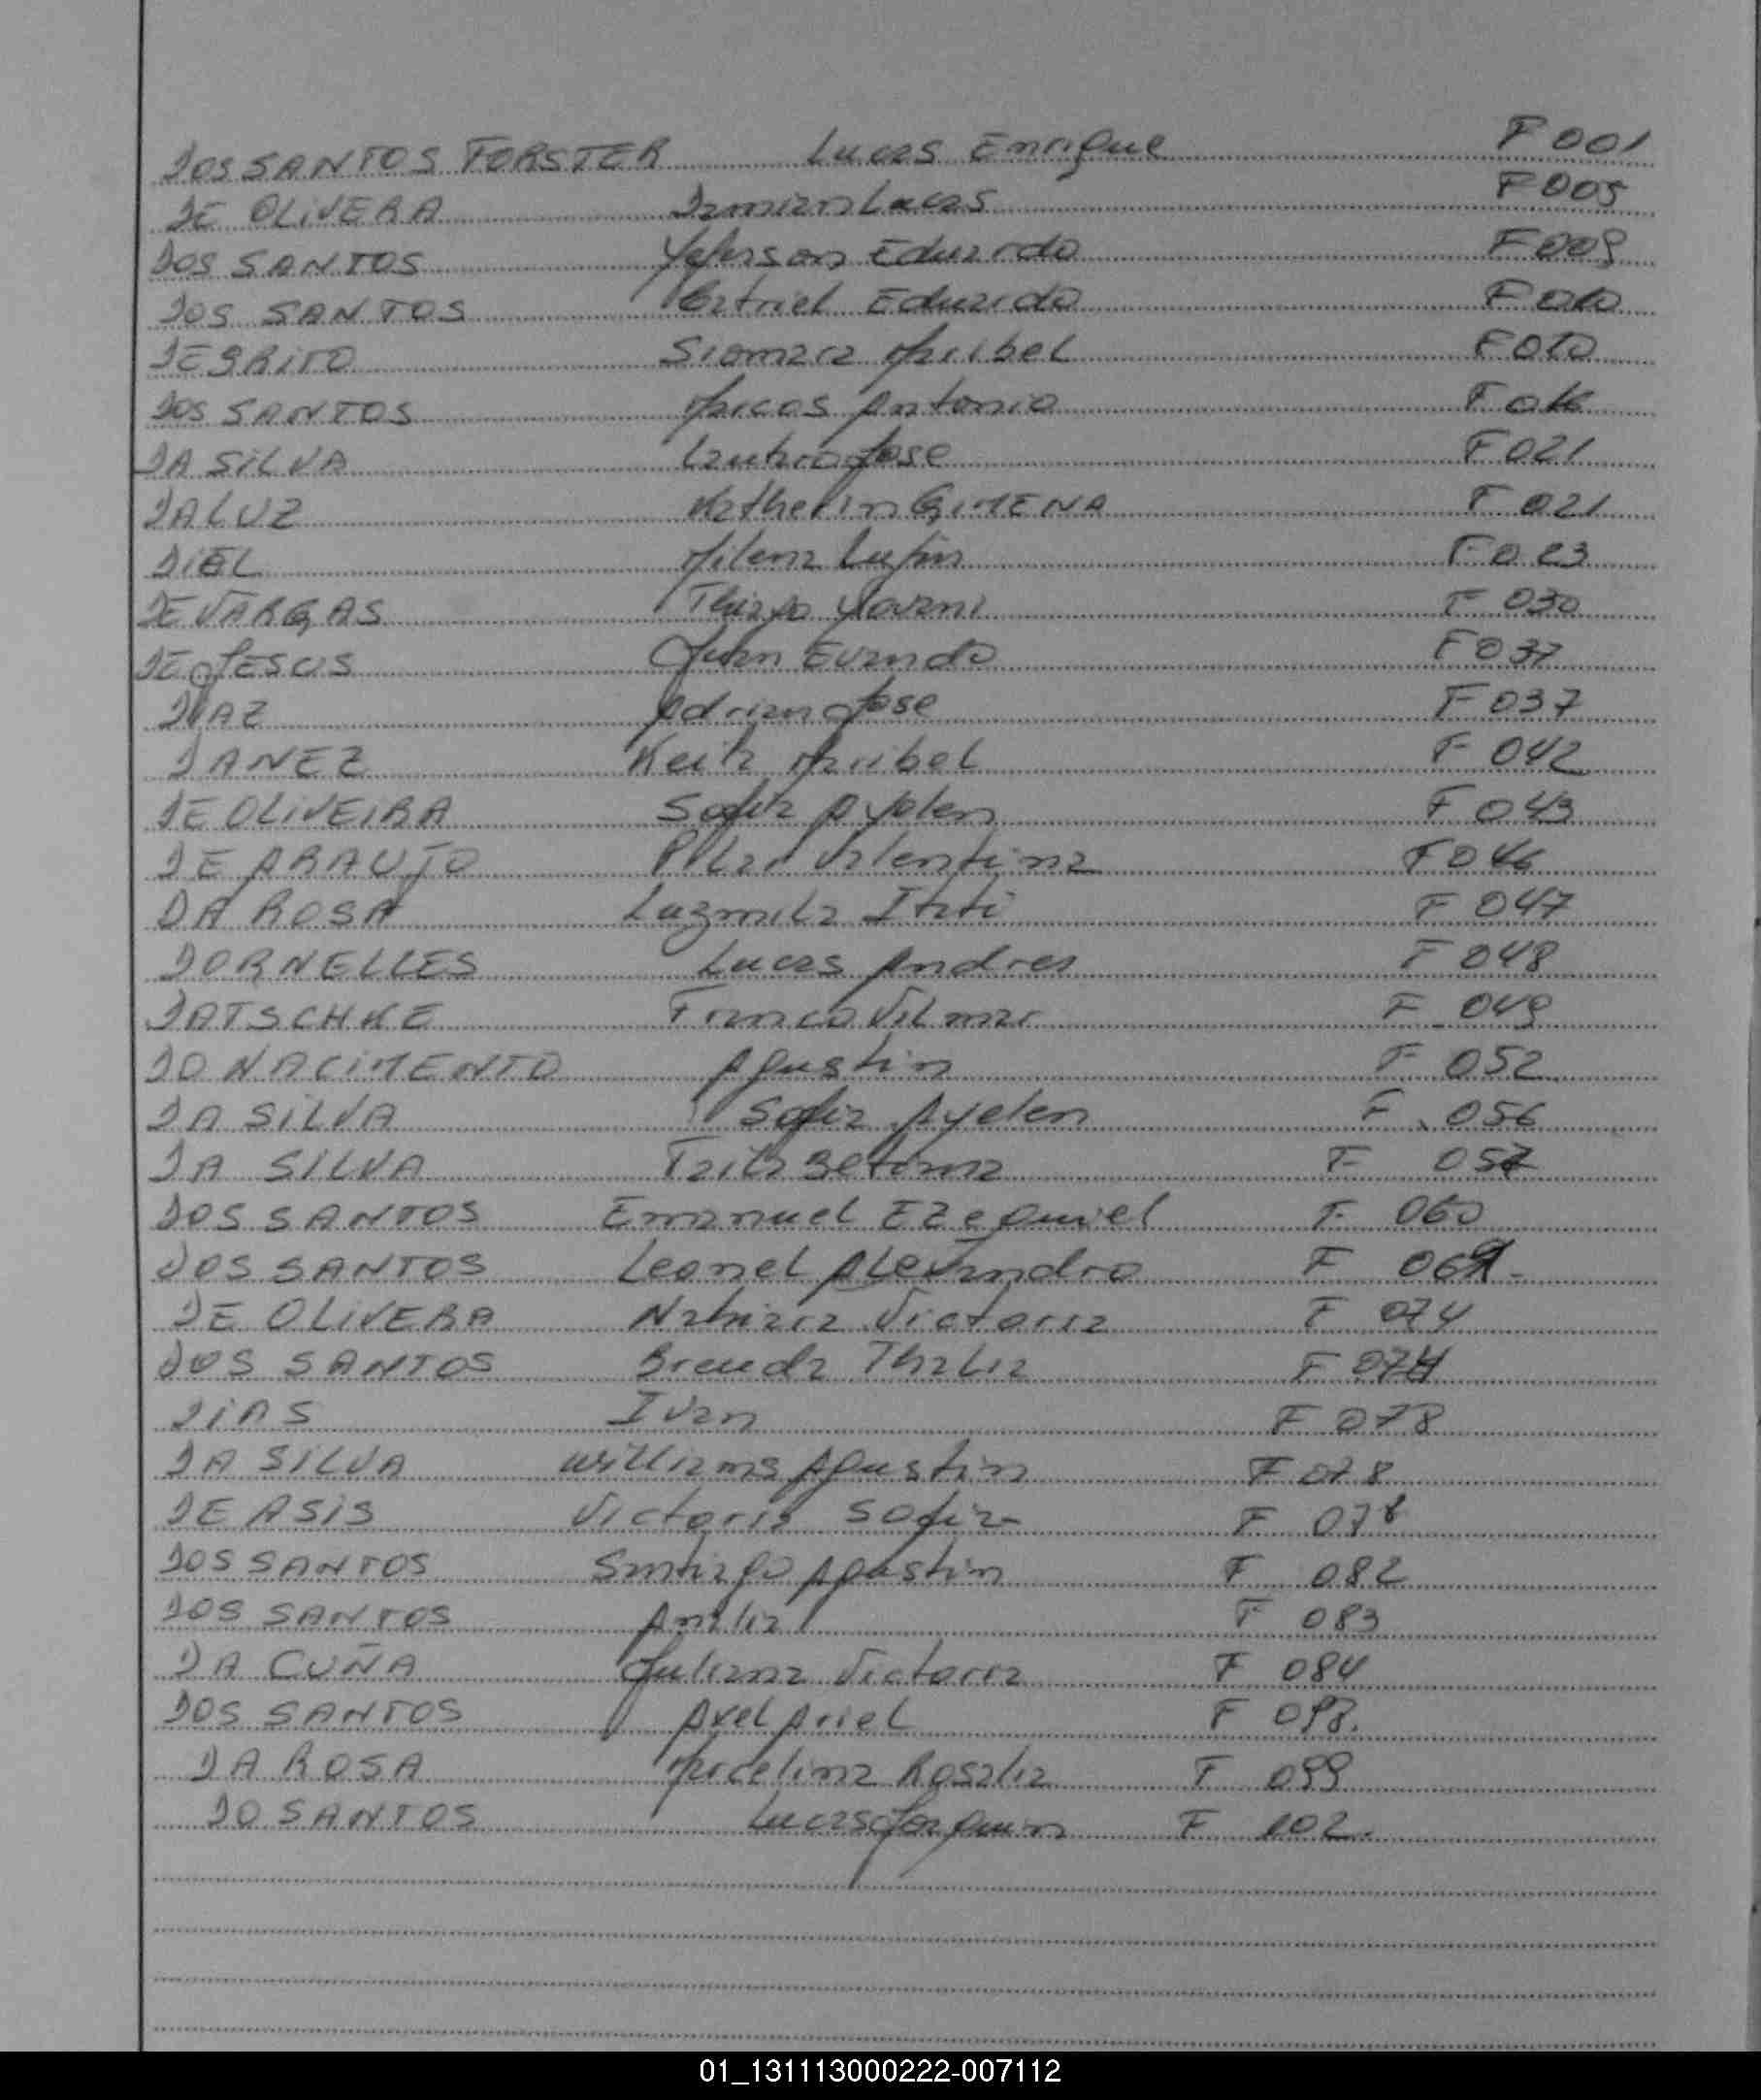 DOS SANTOS FORSTER Lucas Enrique F 001
DE OLIVERA Damian Lucas F 005
DOS SANTOS Yeferson Eduardo F 009
DOS SANTOS Catriel Eduardo F 010
DE BRITO Siomara Maribel F 010
DOS SANTOS Marcos Antonio F 016
DA SILVA Lautaro Jose F 021
DA LUZ Katherin GIMENA F 021
DIEL Milena F 023
DE VARGAS Thiago F 030
DE JESUS Juan Evando F 037
DIAZ Adrian Jose F 037
DANEZ Keila Maribel F 042
DE OLIVEIRA Sofia Ayelen F 043
DE ARAUJO Pilar Valentina F 046
DA ROSA Luzmila Itati F 047
DORNELLES Lucas Andres F 048
DATSCHKE Franco Vilmar F 049
DO NACIMENTO Agustin F 052
DA SILVA Sofia Ayelen F 056
DA SILVA Taila F 057
DOS SANTOS Emanuel Ezequiel F 060
DOS SANTOS Leonel Alexandro F
DE OLIVERA Nahiara Victoria F 074
DOS SANTOS Brenda Thalia F 074
DIAS Ivan F 078
DA SILVA Williams Agustin F 078
DE ASIS Victoria Sofia F 078
DOS SANTOS Santiago Agustin F 082
DOS SANTOS Analia F 083
DA CUÑA Juliana Victoria F 084
DOS SANTOS Axel Ariel F 098.
DA ROSA Marcelina Rosalia F 099
DO SANTOS Lucas Joaquin F 102.
01_131113000222-007112